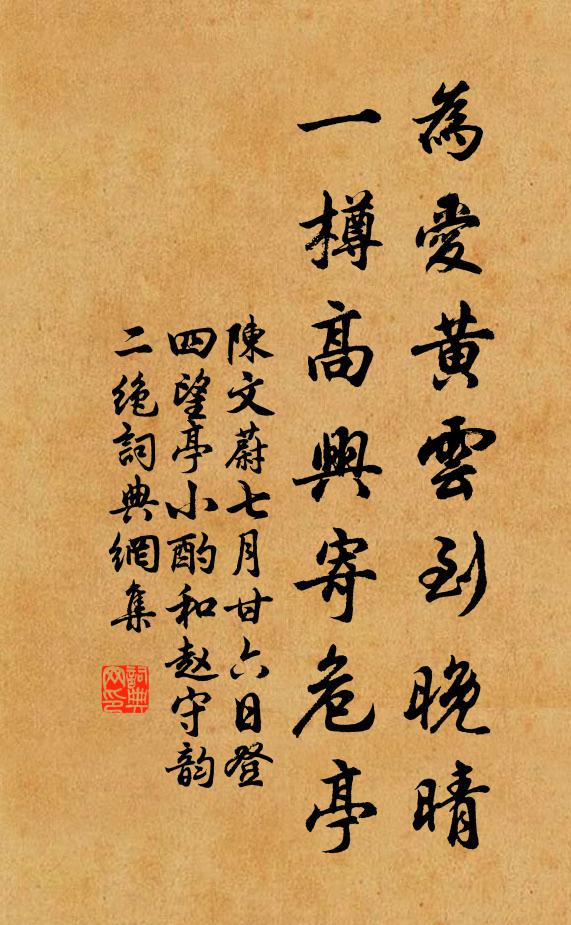 為愛黃雲到晚晴
一樽高興寄危亭
陳文蔚七月廿六日登
四望亭小酌和赵守韵
二绝詞典網集
詞典
网印